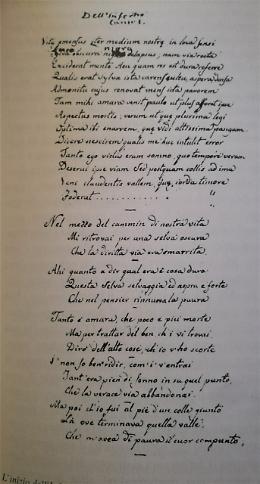 Dell'Inferno
Canto I.
Vitæ prensus iter medium nostræ in loca
obscura
Exciderat mente Heu quam res est dura referre
Qualis erat sylva ista aspera densa
Admonitu cujus renovat mens ista pavorem
Tam mihi amara venit paulo ut plus afferat ipse
Aspectus mortis; verum ut quæ plurima legi
Optima ibi enarrem, quæ vidi altissima pangam
Dicere nescirem qualis me huc intulit error
Tanto ego victus eram somno quo tempore verum
Deserui ipse viam Sed postquam collis ad ima
Veni claudentis vallem quæ corda timore
Foderat
Nel mezzo del cammin di nostra vita
Mi ritrovai per una selva oscura
Che la diritta via era smarrita.
Ahi quanto a dir qual era è cosa dura
Questa selva selvaggia ed aspra e forte
Che nel pensier rinnuova la paura
Tanto è amara, che poco è più morte
Ma per trattar del ben ch'i vi trovai
Dirò dell'altre cose, ch'io v'ho scorte
I' non so ben ridir, com'i v'entrai
Tant'era pien di sonno in su quel punto,
Che la verace via abbandonai.
Ma poi ch'io fui al piè d'un colle giunto
Là ove terminava quella valle,
Che m'avea di paura il cuor compunto,